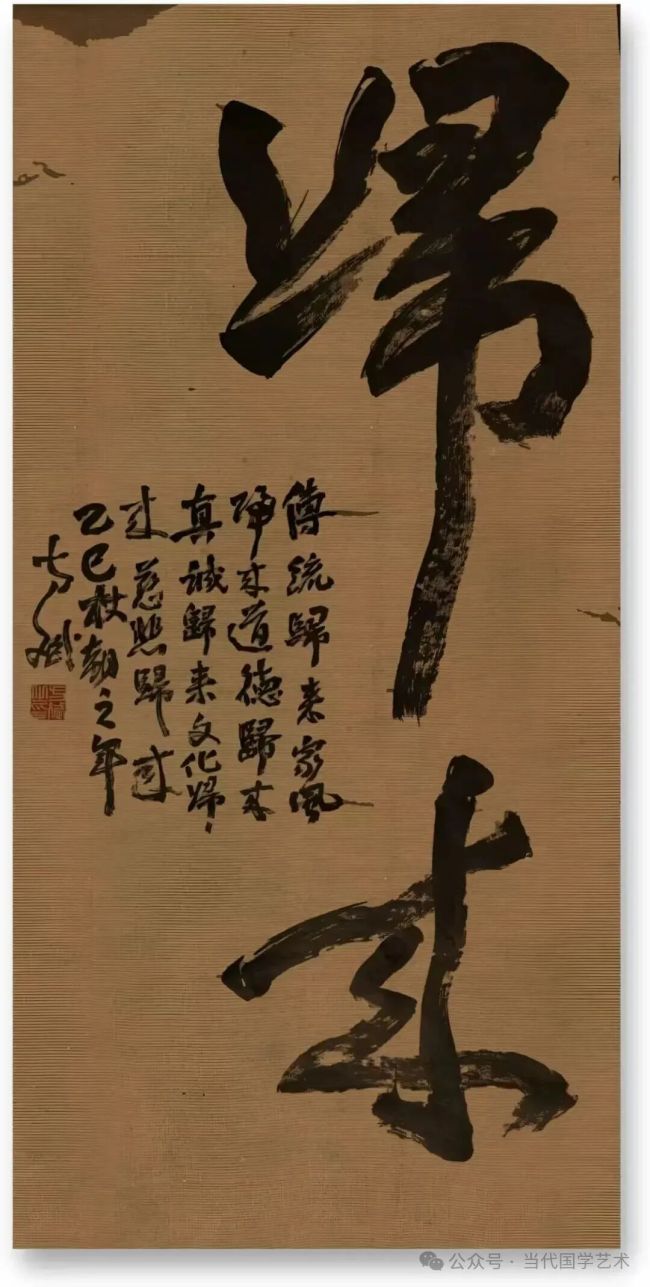 歸来
傳統歸来家風
歸来道德歸来
真誠歸来文化歸
来慈悲歸来
乙巳杖朝之年
公众号 · 当代国学艺术